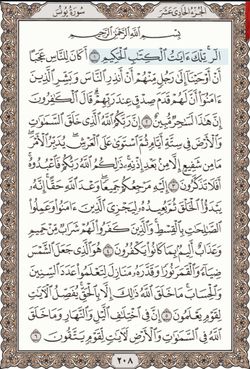 سُورَةُ يُونُسَ الجُزْءُ الحَادِي عَشَرَ
بِسْمِ اللَّهِ الرَّحْمَٰنِ الرَّحِيمِ
الٓر ۚ تِلْكَ ءَايَٰتُ ٱلْكِتَٰبِ ٱلْحَكِيمِ ١ أَكَانَ لِلنَّاسِ عَجَبًا
أَنْ أَوْحَيْنَآ إِلَىٰ رَجُلٍ مِّنْهُمْ أَنْ أَنذِرِ ٱلنَّاسَ وَبَشِّرِ ٱلَّذِينَ
ءَامَنُوٓا۟ أَنَّ لَهُمْ قَدَمَ صِدْقٍ عِندَ رَبِّهِمْ ۗ قَالَ ٱلْكَٰفِرُونَ
إِنَّ هَٰذَا لَسَٰحِرٌ مُّبِينٌ ٢ إِنَّ رَبَّكُمُ ٱللَّهُ ٱلَّذِى خَلَقَ ٱلسَّمَٰوَٰتِ
وَٱلْأَرْضَ فِى سِتَّةِ أَيَّامٍ ثُمَّ ٱسْتَوَىٰ عَلَى ٱلْعَرْشِ ۖ يُدَبِّرُ ٱلْأَمْرَ ۖ
مَا مِن شَفِيعٍ إِلَّا مِنۢ بَعْدِ إِذْنِهِۦ ۚ ذَٰلِكُمُ ٱللَّهُ رَبُّكُمْ فَٱعْبُدُوهُ ۚ
أَفَلَا تَذَكَّرُونَ ٣ إِلَيْهِ مَرْجِعُكُمْ جَمِيعًا ۖ وَعْدَ ٱللَّهِ حَقًّا ۚ إِنَّهُۥ
يَبْدَؤُا۟ ٱلْخَلْقَ ثُمَّ يُعِيدُهُۥ لِيَجْزِىَ ٱلَّذِينَ ءَامَنُوا۟ وَعَمِلُوا۟
ٱلصَّٰلِحَٰتِ بِٱلْقِسْطِ ۚ وَٱلَّذِينَ كَفَرُوا۟ لَهُمْ شَرَابٌ مِّنْ حَمِيمٍ
وَعَذَابٌ أَلِيمٌۢ بِمَا كَانُوا۟ يَكْفُرُونَ ٤ هُوَ ٱلَّذِى جَعَلَ ٱلشَّمْسَ
ضِيَآءً وَٱلْقَمَرَ نُورًا وَقَدَّرَهُۥ مَنَازِلَ لِتَعْلَمُوا۟ عَدَدَ ٱلسِّنِينَ
وَٱلْحِسَابَ ۚ مَا خَلَقَ ٱللَّهُ ذَٰلِكَ إِلَّا بِٱلْحَقِّ ۚ يُفَصِّلُ ٱلْءَايَٰتِ
لِقَوْمٍ يَعْلَمُونَ ٥ إِنَّ فِى ٱخْتِلَٰفِ ٱلَّيْلِ وَٱلنَّهَارِ وَمَا خَلَقَ
ٱللَّهُ فِى ٱلسَّمَٰوَٰتِ وَٱلْأَرْضِ لَءَايَٰتٍ لِّقَوْمٍ يَتَّقُونَ ٦
٢٠٨